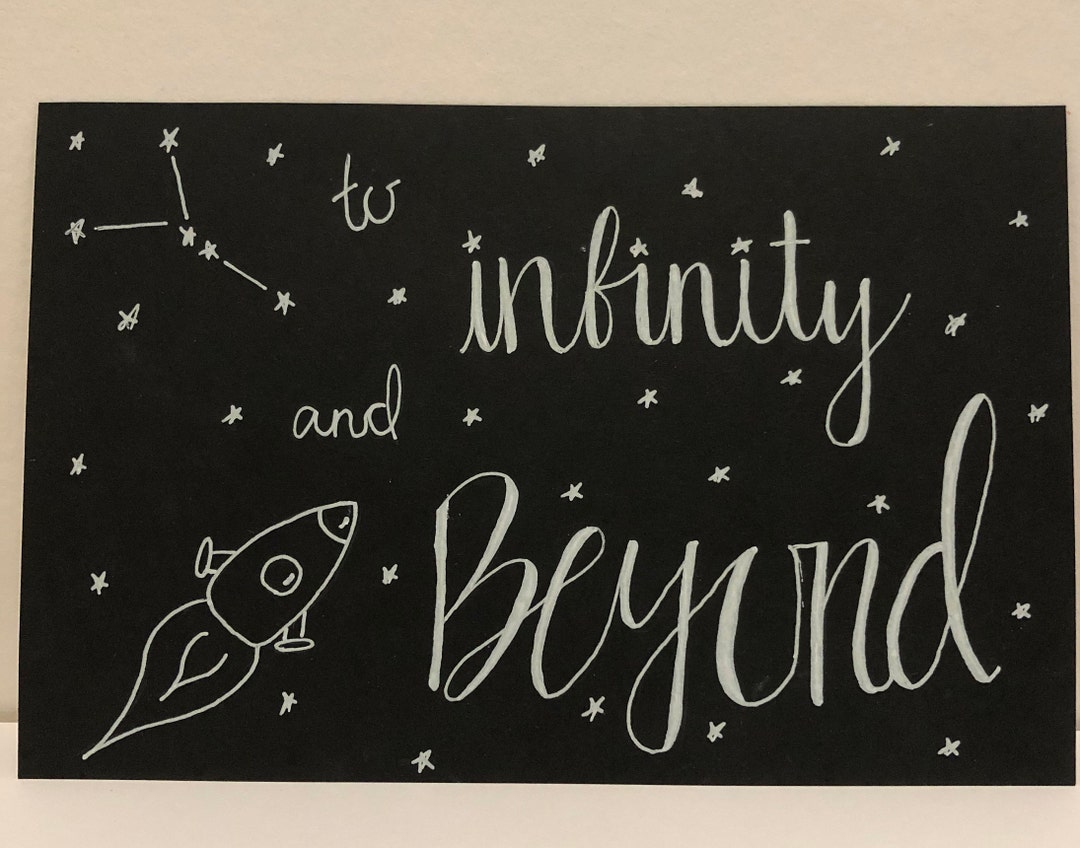 to
infinity
and
Beyond